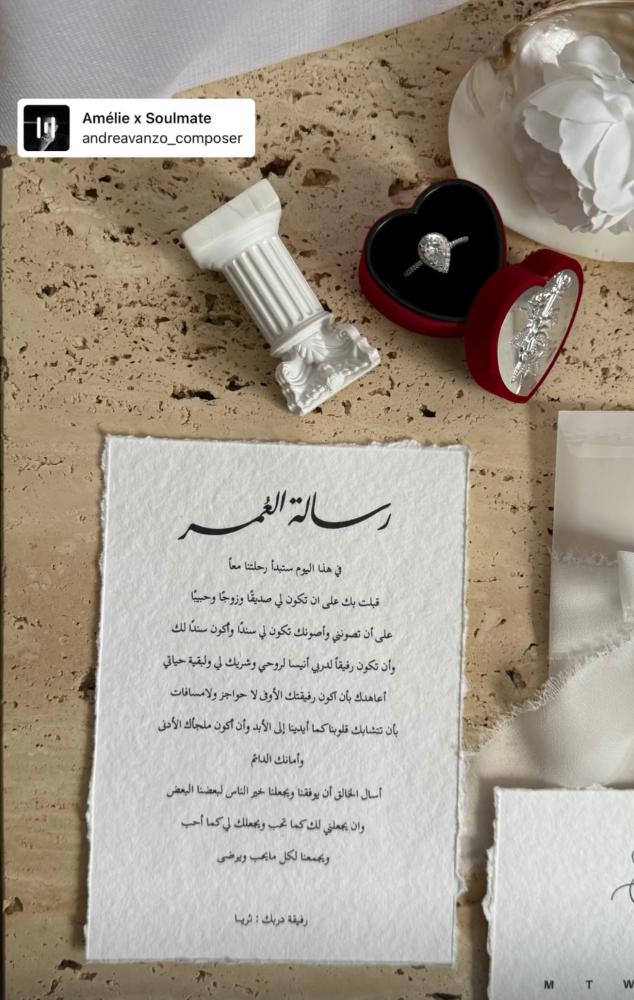 Amélie x Soulmate
andreavanzo_composer
رسالة العُمر
في هذا اليوم ستبدأ رحلتنا معاً
قبلت بك على ان تكون لي صديقًا وزوجًا وحبيبًا
على أن تصونني وأصونك تكون لي سندًا وأكون سندًا لك
وأن تكون رفيقاً لدربي أنيسا لروحي وشريك لي ولبقية حياتي
أعاهدك بأن اكون رفيقتك الأوفى لا حواجز ولامسافات
بأن تتشابك قلوبنا كما أيدينا إلى الأبد وأن أكون ملجأك الأدنى
وأمانك الدائم
أسال الخالق أن يوفقنا ويجعلنا خير الناس لبعضنا البعض
وان يجعلني لك كما تحب ويجعلك لي كما أحب
ويجمعنا لكل مايحب ويرضى
رفيقة دربك : ثريا
M T W